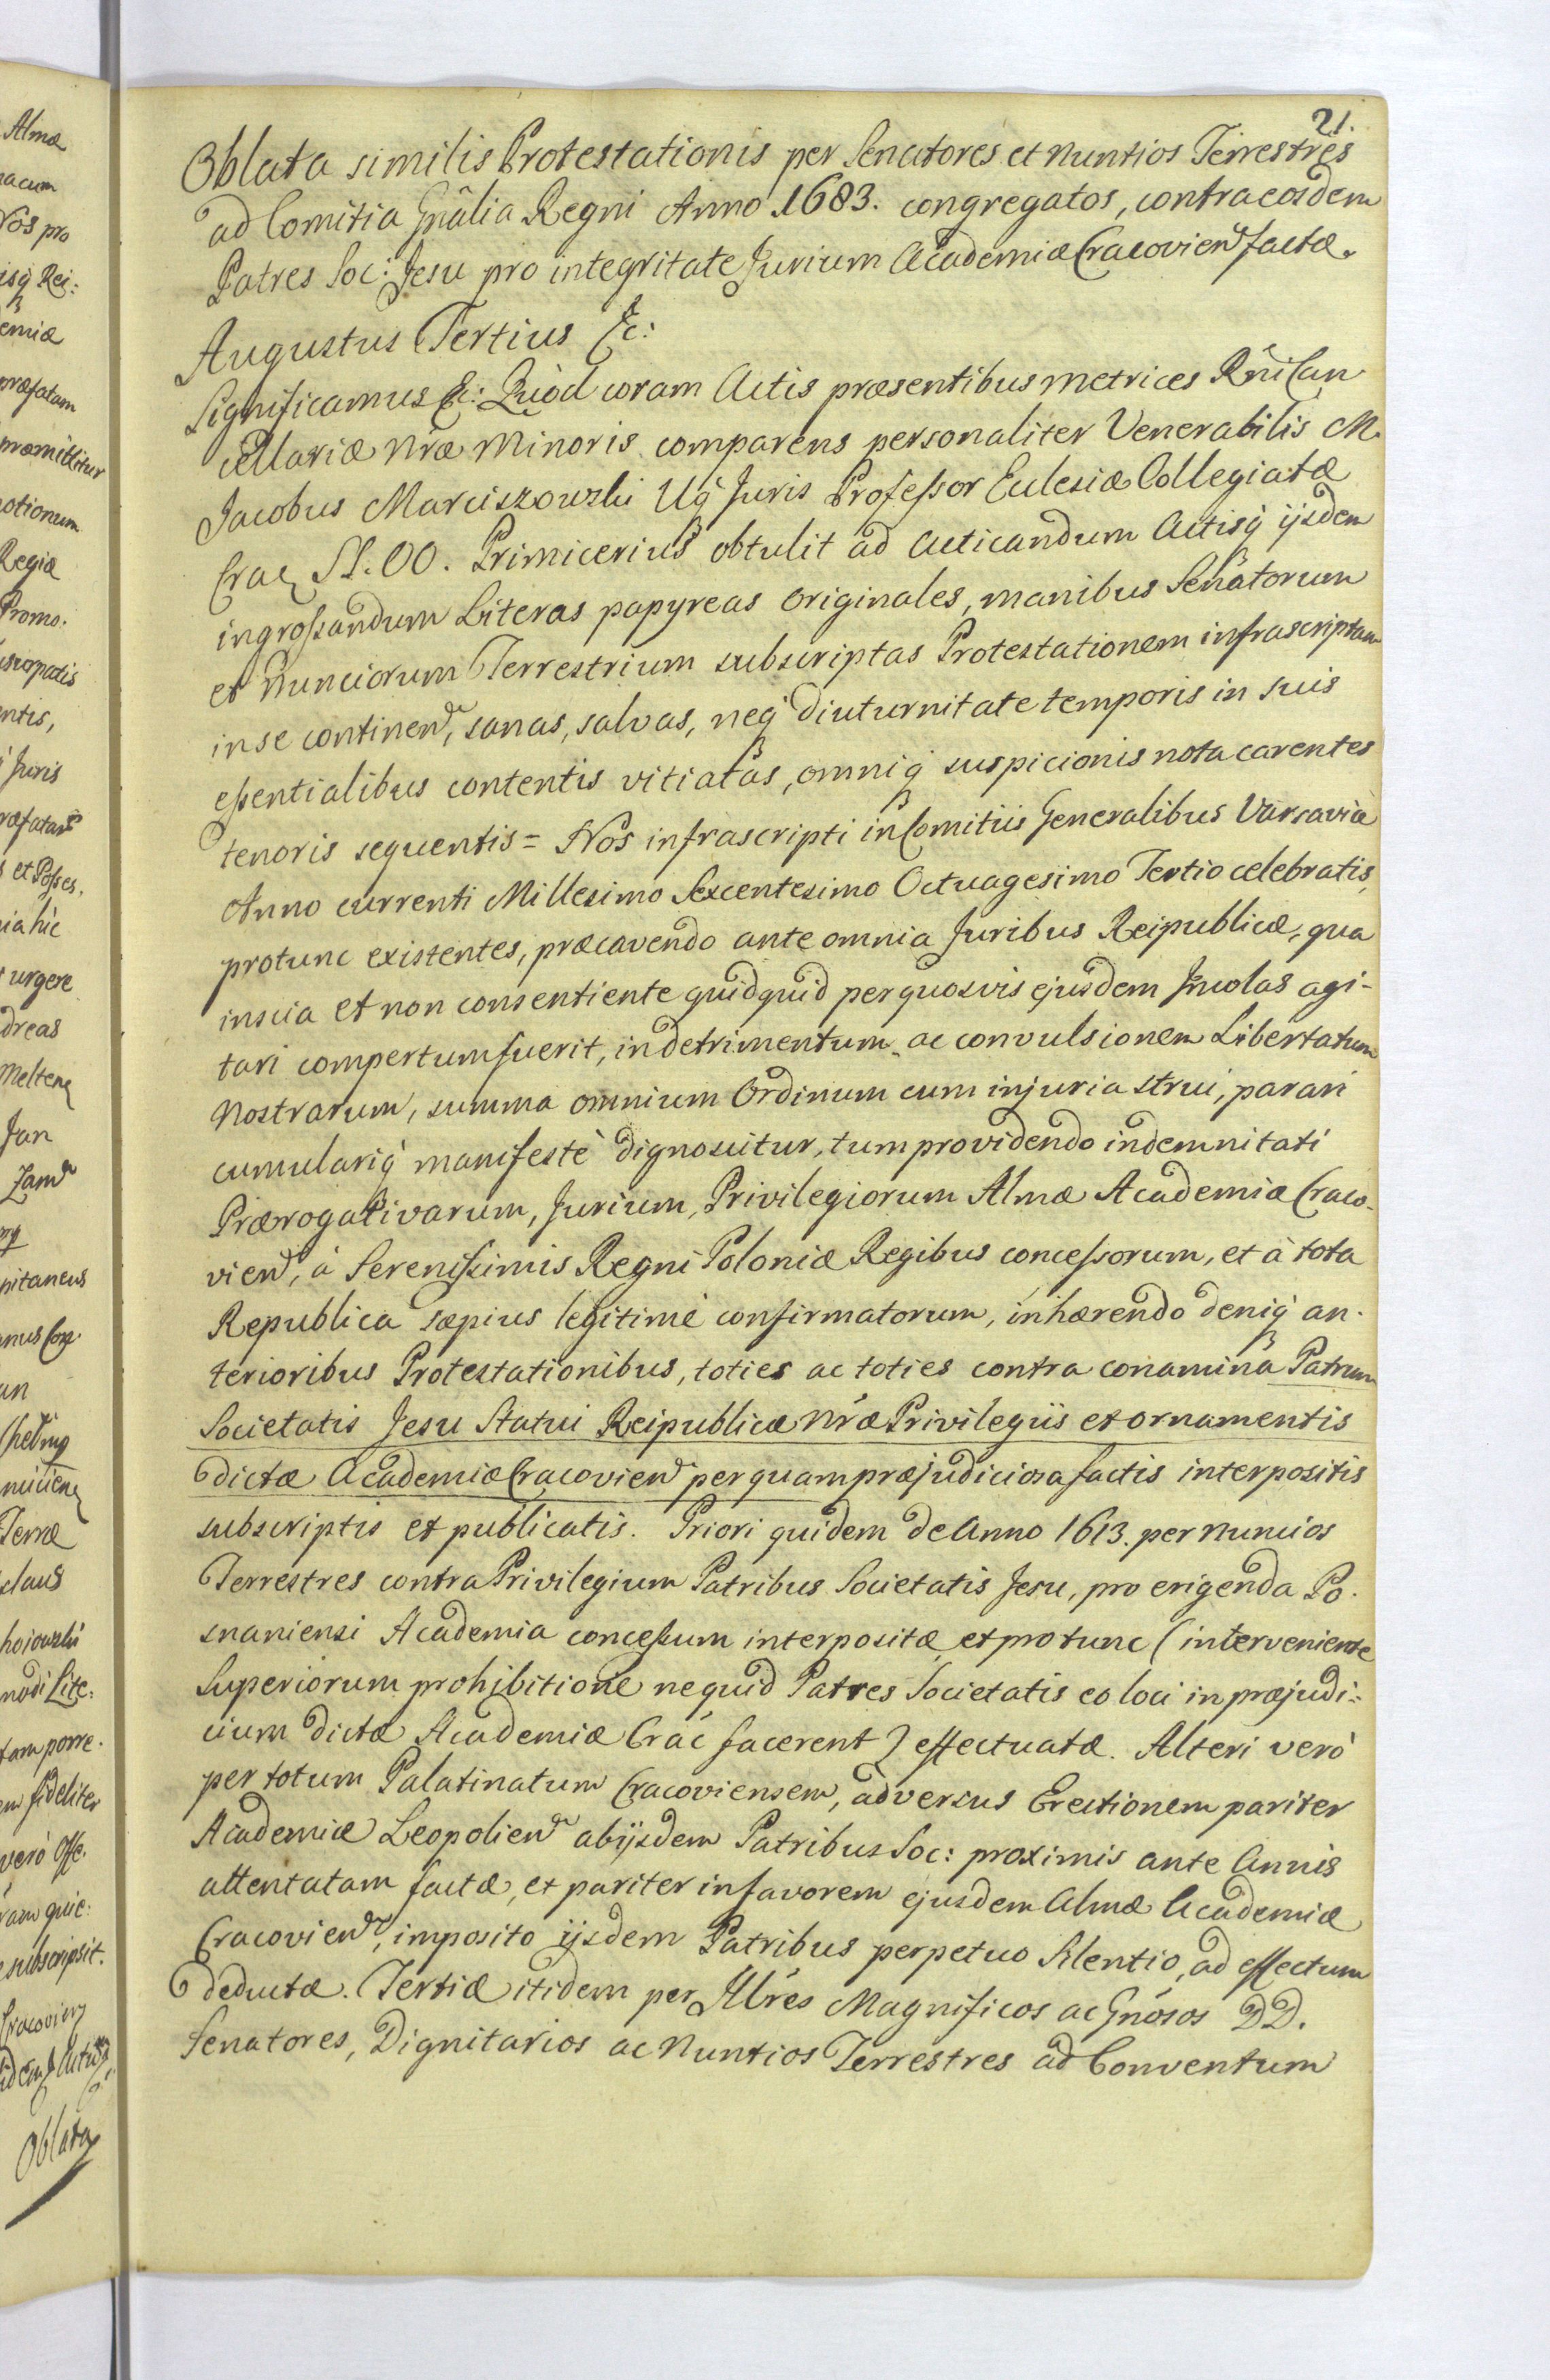 21.
Oblata similis Protestationis per Senatores et Nuntios Terrestres
ad Comitia Gnãlia Regni Anno 1683. congregatos, contra eosdem
Patres Soc: Jesu pro integritate Jurium Academiæ Cracovien factæ.
Augustus Tertius &c:
Significamus &c: Quòd coram Actis præsentibus Metrices Rñi Can
cellariæ Nræ Minoris comparens personaliter Venerabilis M.
Jacobus Marciszowski Uq̃ Juris Professor Eclesiæ Collegiatæ
Crac SS. OO. Primicerius obtulit ad Acticandum Actisq̃ ijsdem
ingrossandum Literas papyreas originales, manibus Senatorum
et Nunciorum Terrestrium subscriptas Protestationem infrascriptam
in se continen, sanas, salvas, neq̃ diuturnitate temporis in suis
essentialibus contentis vitiatas, omniq̃ suspicionis nota carentes
tenoris sequentis = Nos infrascripti in Comitiis Generalibus Varsaviæ
Anno currenti Millesimo Sexcentesimo Octuagesimo Tertio celebratis,
protunc existentes, præcavendo ante omnia Juribus Reipublicæ, qua
inscia et non consentiente quidquid per quosvis ejusdem Incolas agi-
tari compertum fuerit, in detrimentum ac convulsionem Libertatum
Nostrarum, summa omnium Ordinum cum injuria strui, parari
cumulariq̃ manifestè dignoscitur, tum providendo indemnitati
Prærogativarum, Jurium, Privilegiorum Almæ Academiæ Craco-
vien, à Serenissimis Regni Poloniæ Regibus concessorum, et à tota
Republica sæpius legitimè confirmatorum, inhærendo deniq̃ an-
terioribus Protestationibus, toties ac toties contra conamina Patrum
Societatis Jesu Statui Reipublicæ Nræ Privilegiis et ornamentis
dictæ Academiæ Cracovien perquam præjudiciosa factis interpositis
subscriptis et publicatis. Priori quidem de Anno 1613. per Nuncios
Terrestres contra Privilegium Patribus Societatis Jesu, pro erigenda Po-
snaniensi Academia concessum interpositæ et protunc (interveniente
Superiorum prohibitione ne quid Patres Societatis eo loci in præjudi-
cium dictæ Academiæ Crac facerent) effectuatæ. Alteri verò
per totum Palatinatum Cracoviensem, adversus Erectionem pariter
Academiæ Leopolien ab ijsdem Patribus Soc: proximis ante Annis
attentatam factæ, et pariter in favorem ejusdem Almæ Academiæ
Cracovien, imposito ijsdem Patribus perpetuo Silentio, ad effectum
deductæ. Tertiæ itidem per Illres Magnificos ac Gnosos DD.
Senatores, Dignitarios ac Nuntios Terrestres ad Conventum